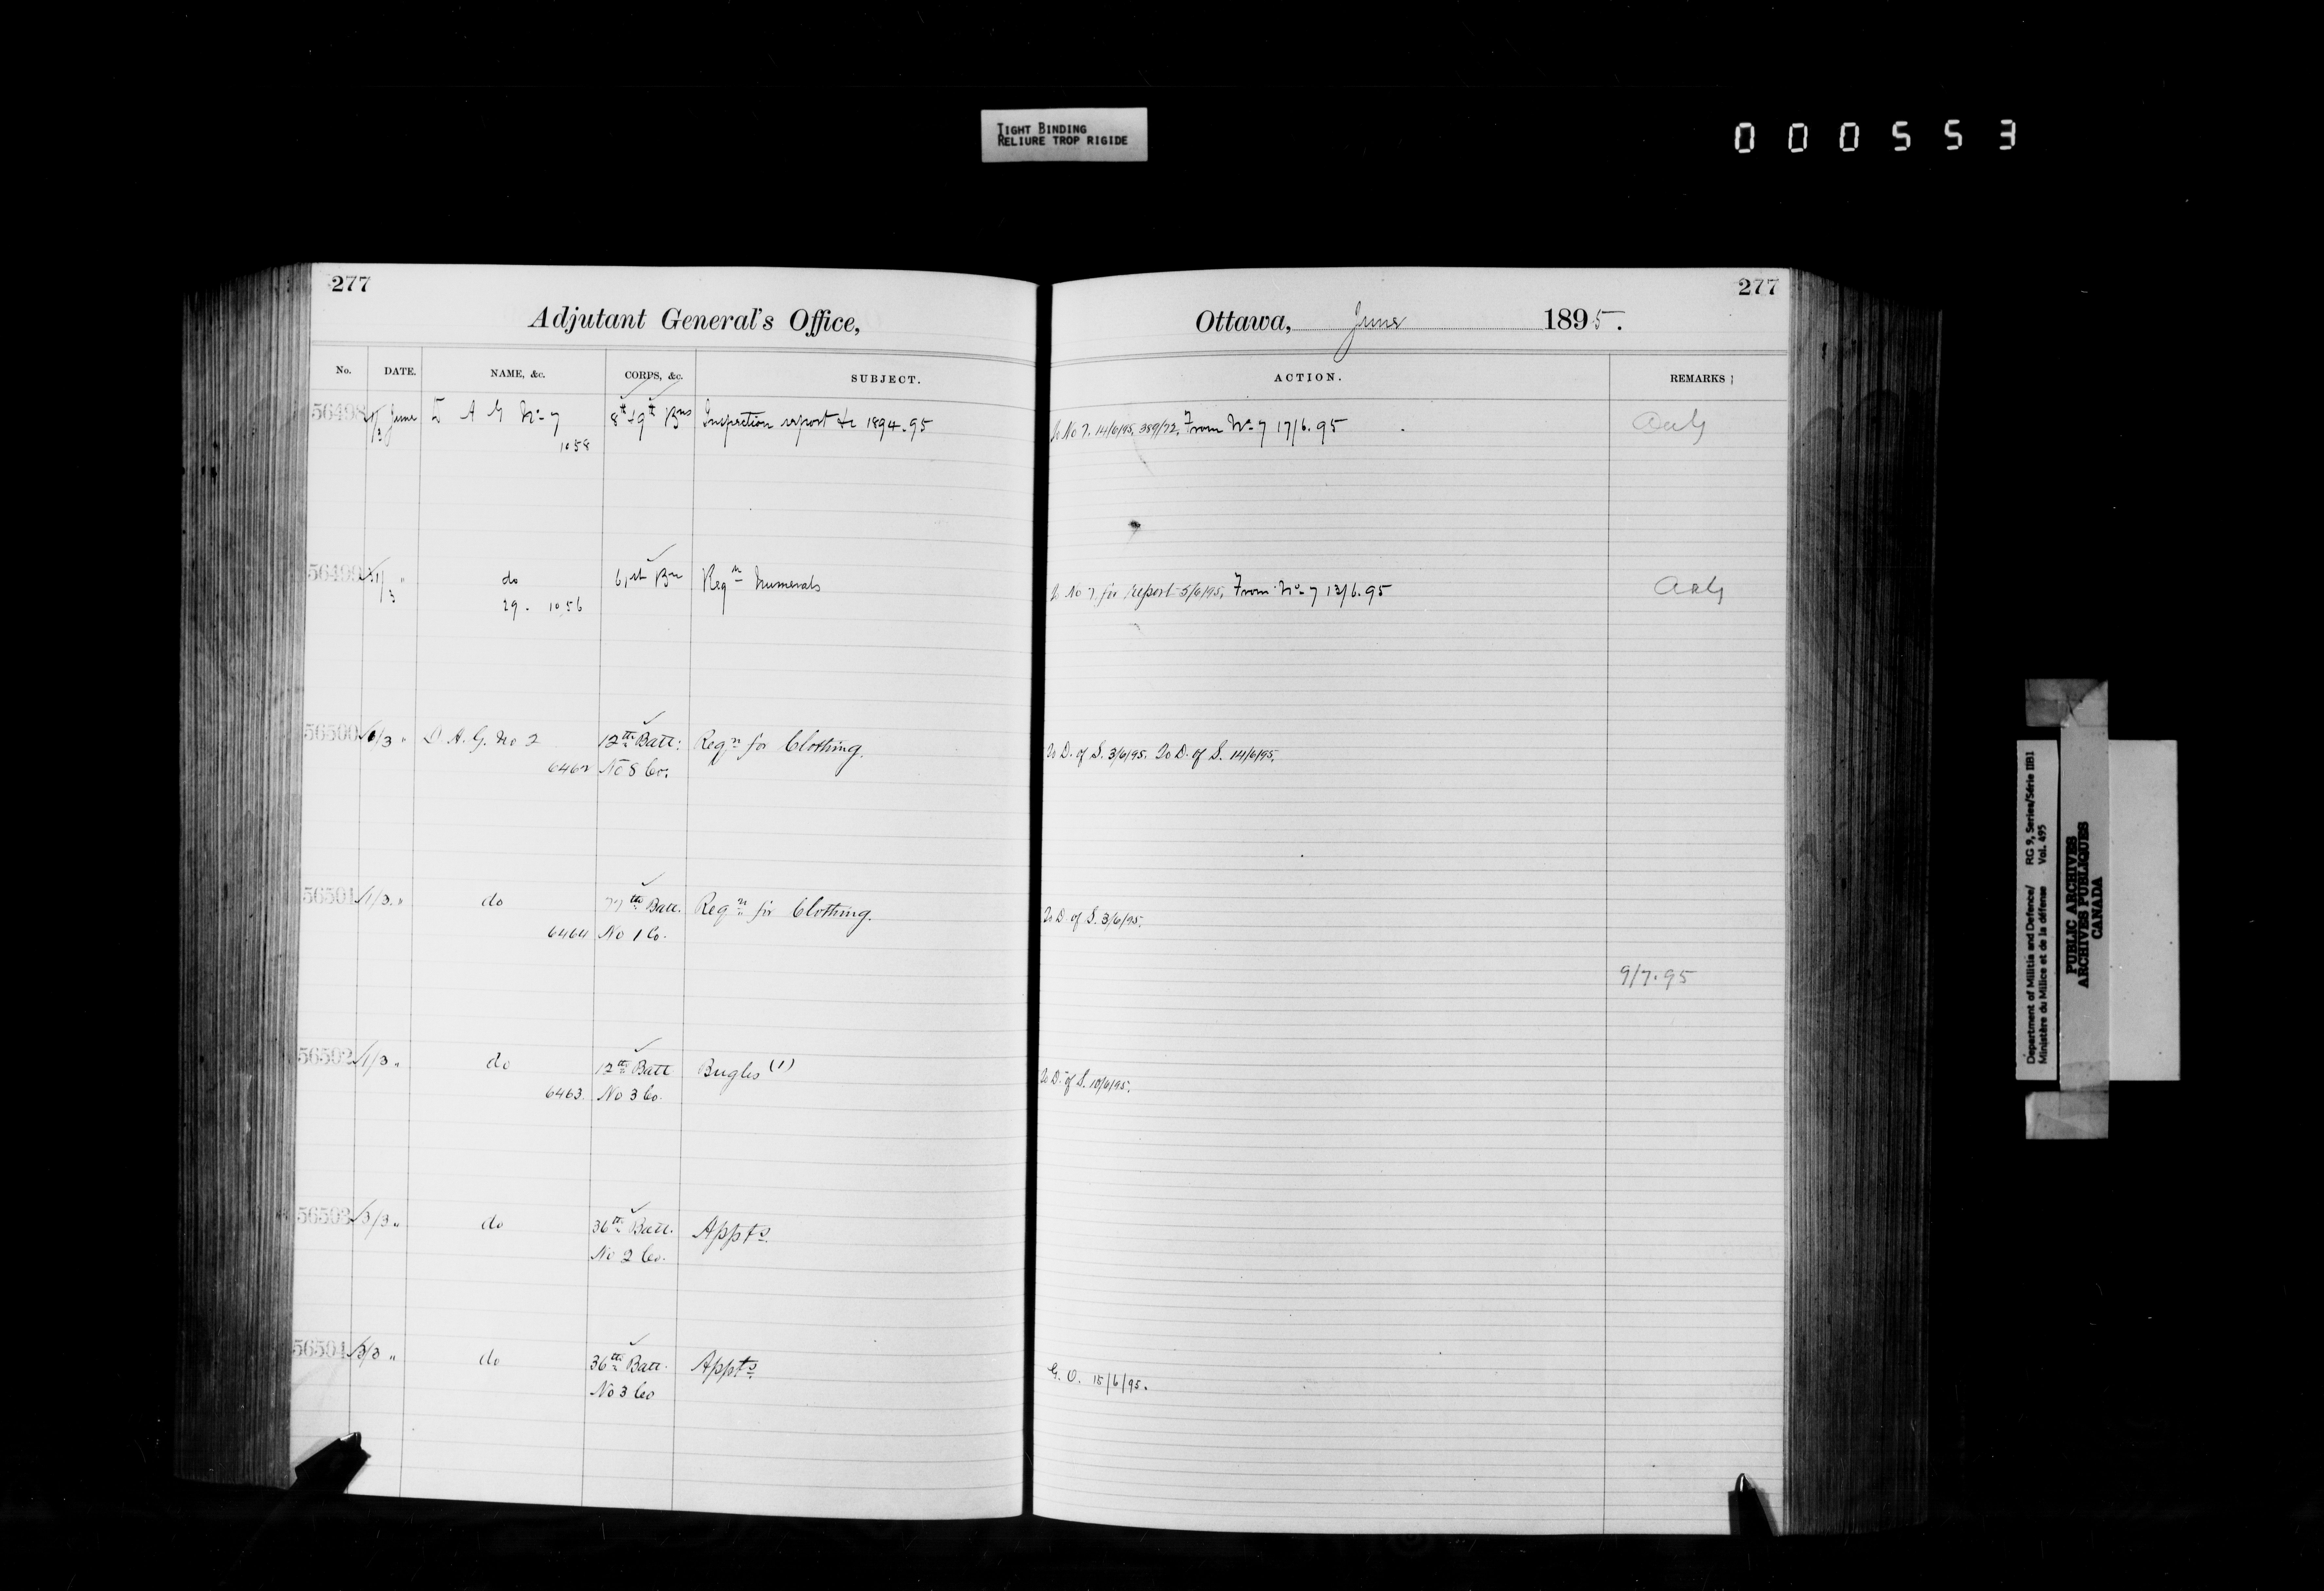 TIGHT BINDING
RELIURE TROP RIGIDE
000553
277
Adjutant General's Office,
No. DATE. NAME, &c. CORPS, &c. SUBJECT.
56498 June D A G No 7 8th & 9th Bns Inspection report &c 1894.95
1058
56499 31/3 " do 61st Bn Reqn Numerals
29. 1056
56500 1/3 " D. A. G. No 2 12th Batt: Reqn for Clothing.
6462 No 8 Co.
56501 1/3 " do 77th Batt. Reqn for Clothing.
6464 No 1 Co.
56502 1/3 " do 12th Batt Bugles (1)
6463. No 3 Co.
56503 3/3 " do 36th Batt. Appts
No 2 Co.
56504 3/3 " do 36th Batt. Appts
No 3 Co
277
Ottawa, June 1895.
ACTION. REMARKS
To No 7. 14/6/95. 389/72. From No 7 17/6.95
To No 7. for report 5/6/95. From No 7 13/6.95
To D. of S. 3/6/95. To D. of S. 14/6/95.
To D. of S. 3/6/95.
9/7.95
To D. of S. 10/6/95.
G. O. 15/6/95.
Department of Militia and Defence/ RG 9, Series/Série IIB1
Ministère du Milice et de la défense Vol. 495
PUBLIC ARCHIVES
ARCHIVES PUBLIQUES
CANADA